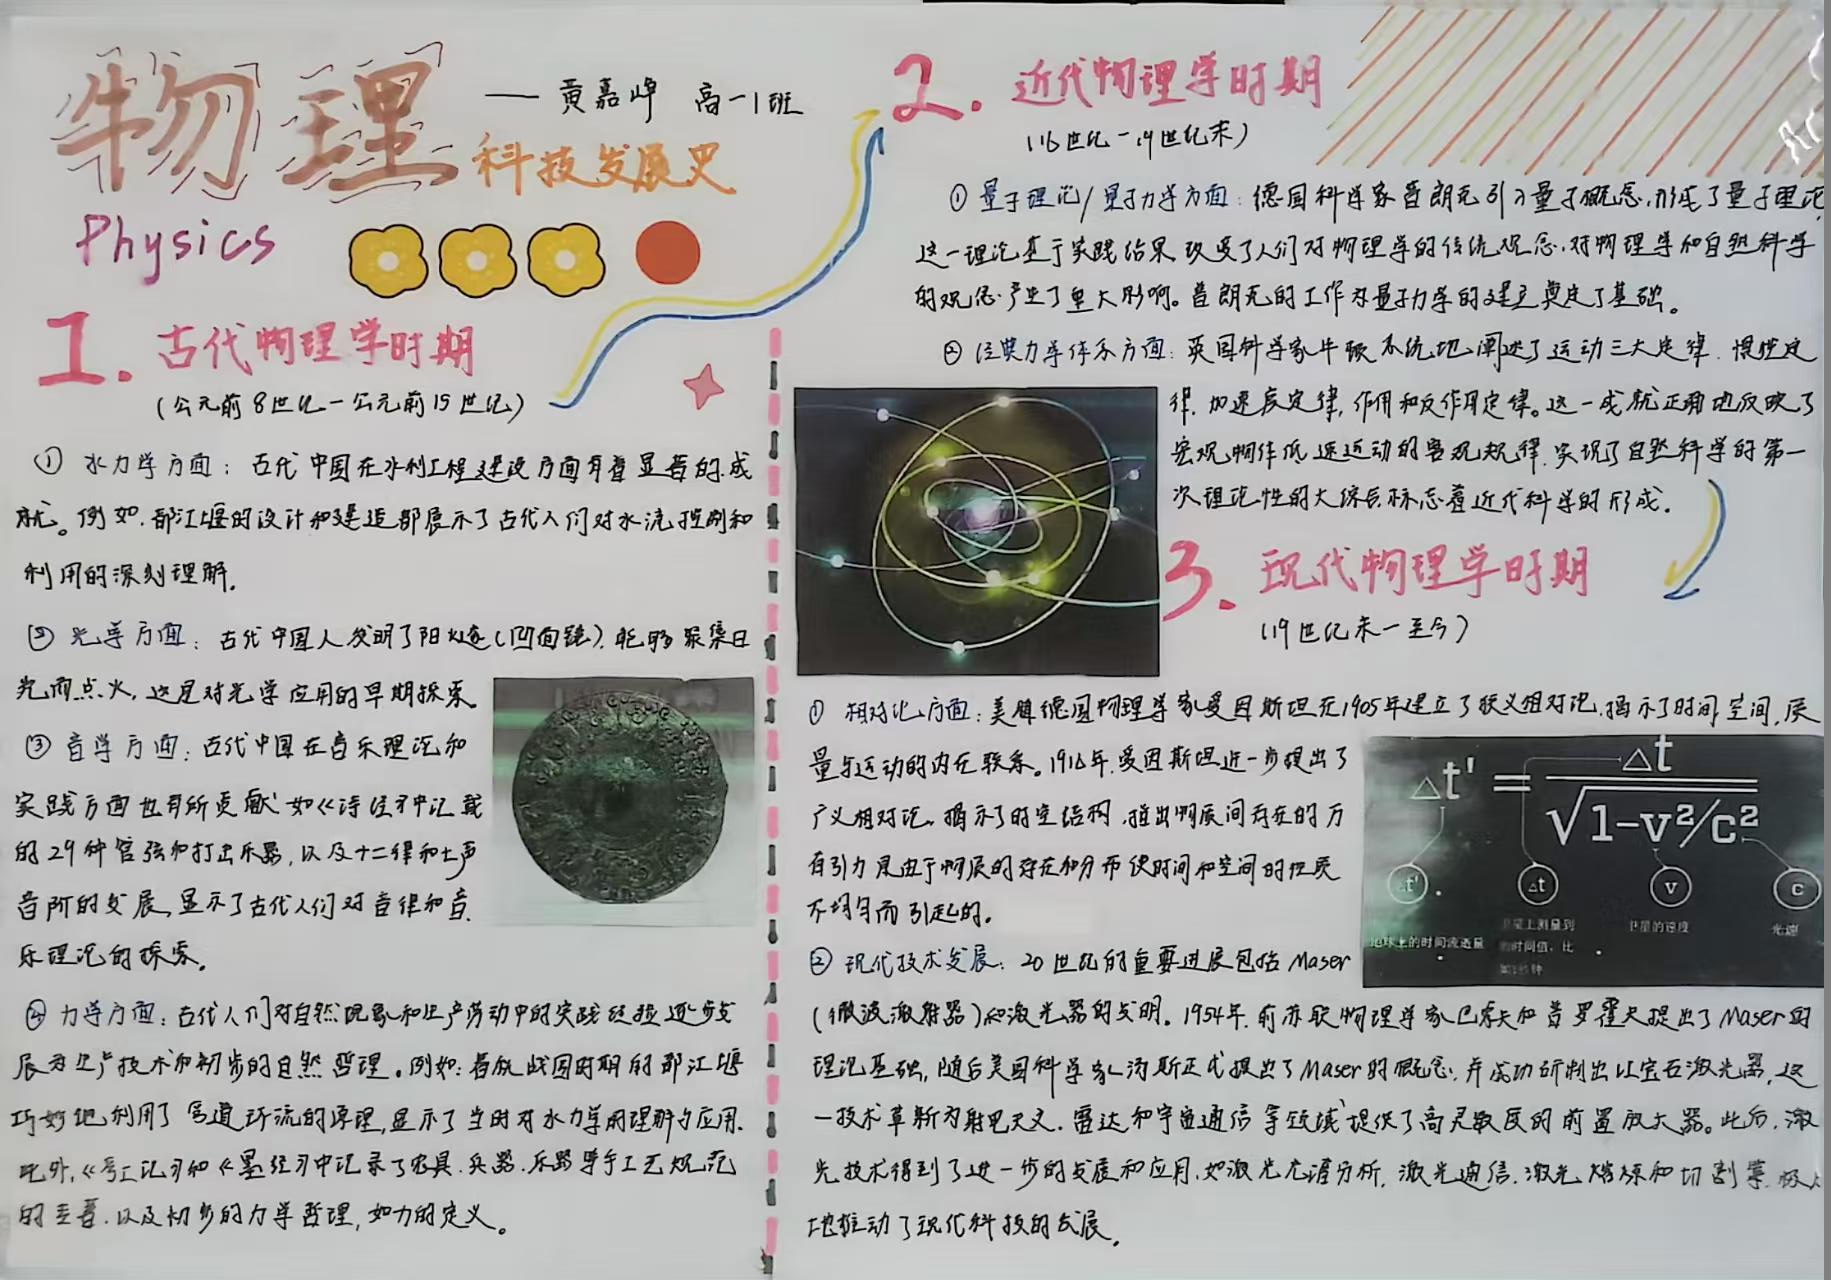 物理
—— 黄嘉峰 高一1班
科技发展史
Physics
1. 古代物理学时期
(公元前8世纪-公元前15世纪)
① 水力学方面：古代中国在水利工程建设方面有着显著的成
就。例如,都江堰的设计和建造都展示了古代人们对水流控制和
利用的深刻理解。
② 光学方面：古代中国人发明了阳燧(凹面镜),能够聚集日
光而点火,这是对光学应用的早期探索。
③ 音学方面：古代中国在音乐理论和
实践方面也有所贡献,如《诗经》中记载
的29种管弦和打击乐器,以及十二律和七声
音阶的发展,显示了古代人们对音律和音
乐理论的探索。
④ 力学方面：古代人们对自然现象和生产劳动中的实践经验逐步发
展为生产技术和初步的自然哲理。例如:春秋战国时期的都江堰
巧妙地利用了弯道环流的原理,显示了当时对水力学的理解与应用.
此外,《考工记》和《墨经》中记录了农具、兵器、乐器等手工艺规范
的主著,以及初步的力学哲理,如力的定义。
2. 近代物理学时期
(16世纪-19世纪末)
① 量子理论/量子力学方面：德国科学家普朗克引入量子概念,形成了量子理论,
这一理论基于实践结果改变了人们对物理学的传统观念,对物理学和自然科学
的观念产生了重大影响。普朗克的工作为量子力学的建立奠定了基础。
② 经典力学体系方面：英国科学家牛顿系统地阐述了运动三大定律,惯性定
律,加速度定律,作用和反作用定律。这一成就正确地反映了
宏观物体低速运动的客观规律,实现了自然科学的第一
次理论性的大综合,标志着近代科学的形成。
3. 现代物理学时期
(19世纪末-至今)
① 相对论方面：美籍德国物理学家爱因斯坦在1905年建立了狭义相对论,揭示了时间,空间,质
量与运动的内在联系。1916年,爱因斯坦进一步提出了
广义相对论,揭示了时空结构,推出物质间存在的万
有引力是由于物质的存在和分布使时间和空间的性质
不均匀而引起的。
△t' = △t / √1-v²/c²
△t' △t v c
地球上的时间流逝量
卫星上测量到
的时间值，比
如1秒钟
卫星的速度
光速
② 现代技术发展：20世纪的重要进展包括Maser
(微波激射器)和激光器的发明。1954年,前苏联物理学家巴索夫和普罗霍夫提出了Maser的
理论基础,随后美国科学家汤斯正式提出了Maser的概念,并成功研制出红宝石激光器,这
一技术革新为射电天文、雷达和宇宙通信等领域提供了高灵敏度的前置放大器。此后,激
光技术得到了进一步的发展和应用,如激光光谱分析,激光通信,激光熔炼和切割等,极大
地推动了现代科技的发展。